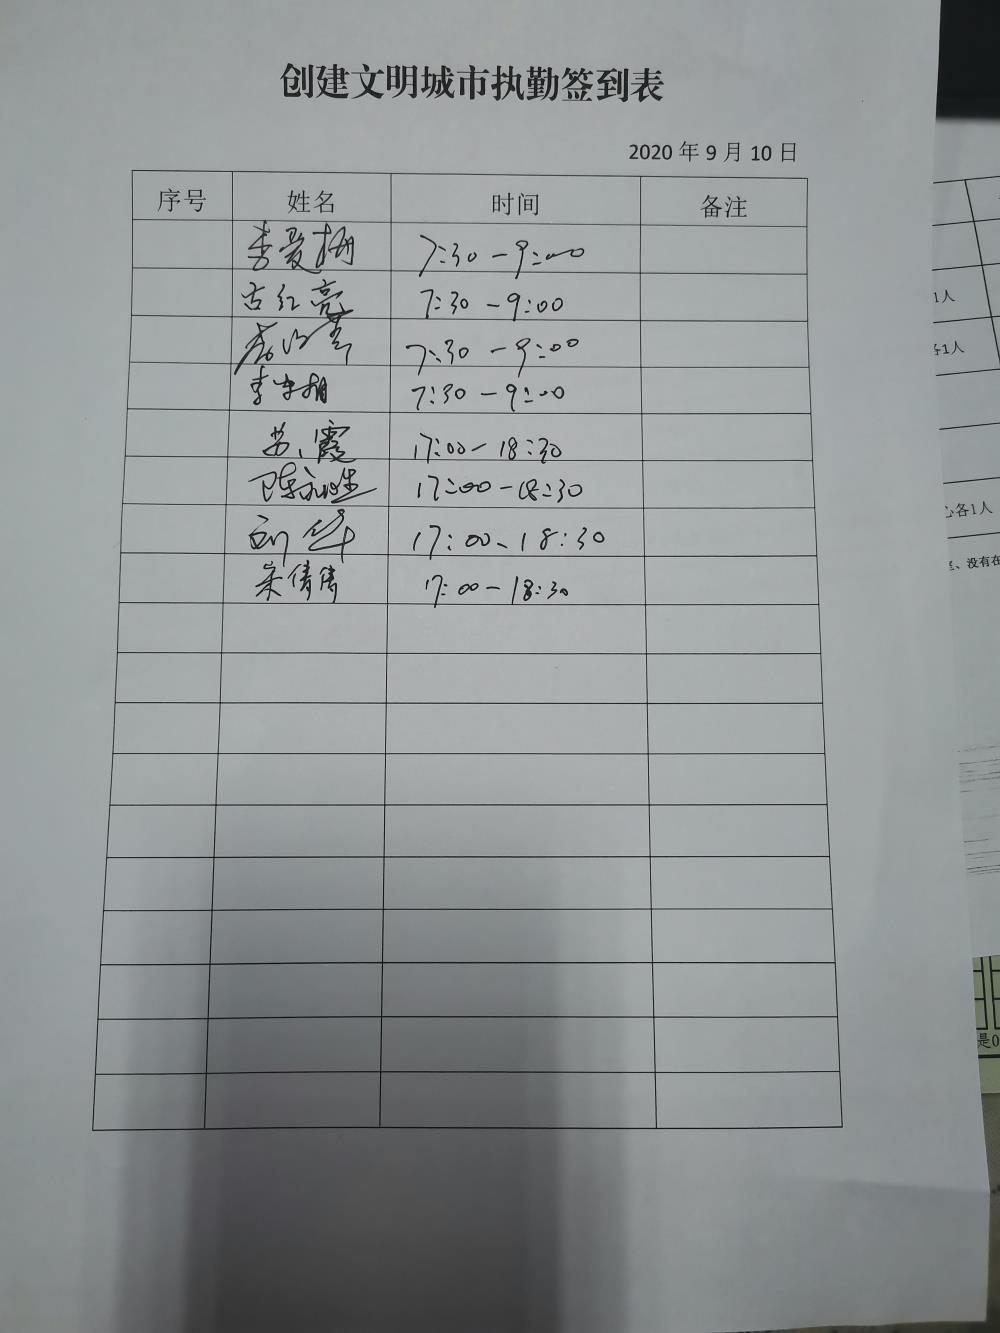 创建文明城市执勤签到表
2020 年 9 月 10 日
序号 姓名 时间 备注
李爱梅 7:30-9:00
古红亮 7:30-9:00
7:30-9:00
李 7:30-9:00
苏霞 17:00-18:30
陈 17:00-18:30
刘华 17:00-18:30
朱倩倩 17:00-18:30
1人
各1人
心各1人
、没有在
是0